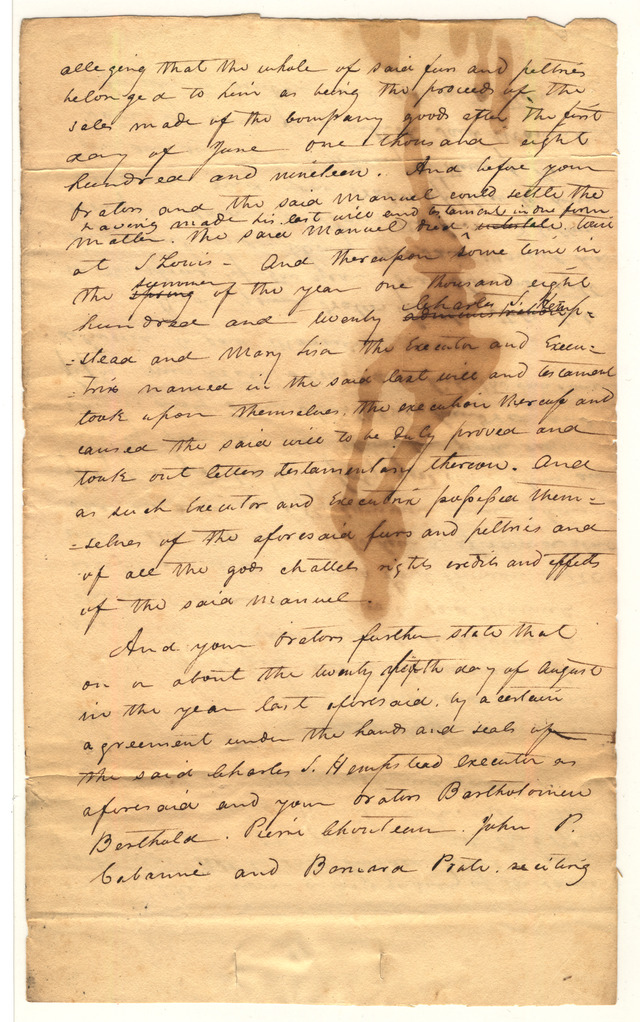 alledging that the whole of said furs and peltries
belonged to him as being the proceeds of the
sales made of the Company goods after the first
day of June one thousand eight
hundred and nineteen. And before your
Orators and the said Manuel could settle the
having made his last will and testament in due form
matter. the said Manuel died
at S Louis - And thereupon some time in
summer
the spring of the year one thousand eight
Charles S. Hemp=
hundred and twenty administration
=stead and Mary Lisa the Executor and Execu=
=trix named in the said last will and testament
took upon themselves the execution thereof and
caused the said will to be duly proved and
took out letters testamentary thereon. And
as such Executor and Executrix possessed them=
=selves of the aforesaid furs and peltries and
of all the gods chattels rights credits and effects
of the said Manuel.
And your Orators further state that
on or about the twenty fifth day of August
in the year last aforesaid, by a certain
agreement under the hands and seals of
the said Charles S. Hempstead executor as
aforesaid and your orators Bartholomew
Berthold. Pierre Chouteau. John P.
Cabanné and Bernard Pratte. reciting